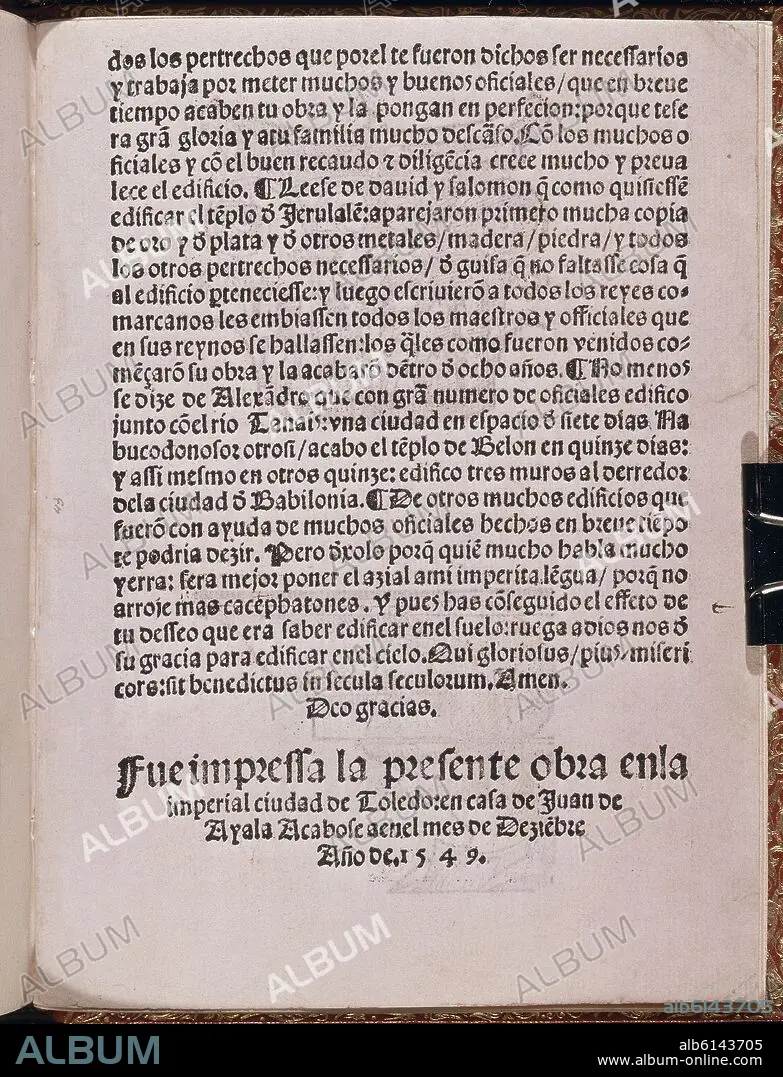 dos los pertrechos que porel te fueron dichos ser necessarios
y trabaja por meter muchos y buenos oficiales/que en breue
tiempo acaben tu obra y la pongan en perfecion:porque tese
ra grã gloria y atu familia mucho descãso.Cõ los muchos o
ficiales y cõ el buen recaudo ⁊ diligẽcia crece mucho y preua
lece el edificio. ¶Leese de dauid y salomon q̃ como quisiessẽ
edificar el tẽplo đ Jerusalẽ:aparejaron primero mucha copia
de oro y đ plata y đ otros metales/madera/piedra/y todos
los otros pertrechos necessarios/ đ guisa q̃ no faltasse cosa q̃
al edificio ꝑteneciesse:y luego escriuierõ a todos los reyes co-
marcanos les embiassen todos los maestros y officiales que
en sus reynos se hallassen:los q̃les como fueron venidos co-
mẽçarõ su obra y la acabarõ dẽtro đ ocho años. ¶No menos
se dize de Alexãdre que con grã numero de oficiales edifico
junto cõel rio Tanais:vna ciudad en espacio đ siete dias Na
bucodonosor otrosi/acabo el tẽplo de Belon en quinze dias:
y assi mesmo en otros quinze: edifico tres muros al derredor
dela ciudad đ Babilonia.¶De otros muchos edificios que
fuerõ con ayuda de muchos oficiales hechos en breue tiẽpo
te podria dezir. Pero đxolo porq̃ quiẽ mucho habla mucho
yerra: sera mejor poner el azial ami imperita lẽgua/ porq̃ no
arroje mas cacephatones. Y pues has cõseguido el effeto de
tu desseo que era saber edificar enel suelo:ruega adios nos đ
su gracia para edificar enel cielo.Qui gloriosus/pius/miseri
cors:sit benedictus in secula seculorum.Amen.
Deo gracias.
Fue impressa la presente obra enla
imperial ciudad de Toledo:en casa de Juan de
Ayala Acabose aenel mes de Deziẽbre
Año de.1549.
ALBUM
alb6143705
ALBUM
alb6143705
www.album-online.com